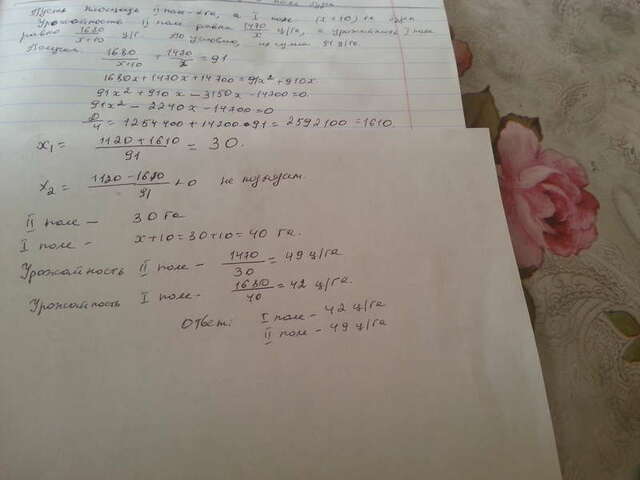 Пусть площадь II поле - x га, а I поле (x+10) га. Тогда
Урожайность II поле равна 1470/x ц/га, а урожайность I поле
равно 1680/x+10 ц/г По условию, их сумма 91 ц/га.
1680/x+10 + 1470/x = 91
1680x+1470x+14700=91x²+910x.
91x²+910x-3150x-14700=0.
91x²-2240x-14700=0
D/4=1254400+14700·91=2592100=1610.
x₁= 1120+1610/91 = 30.
x₂= 1120-1610/91 <0 не подходит.
II поле - 30 га
I поле - x+10=30+10=40 га.
Урожайность II поле - 1470/30 = 49 ц/га
Урожайность I поле - 1680/40 = 42 ц/га.
Ответ: I поле - 42 ц/га
II поле - 49 ц/га